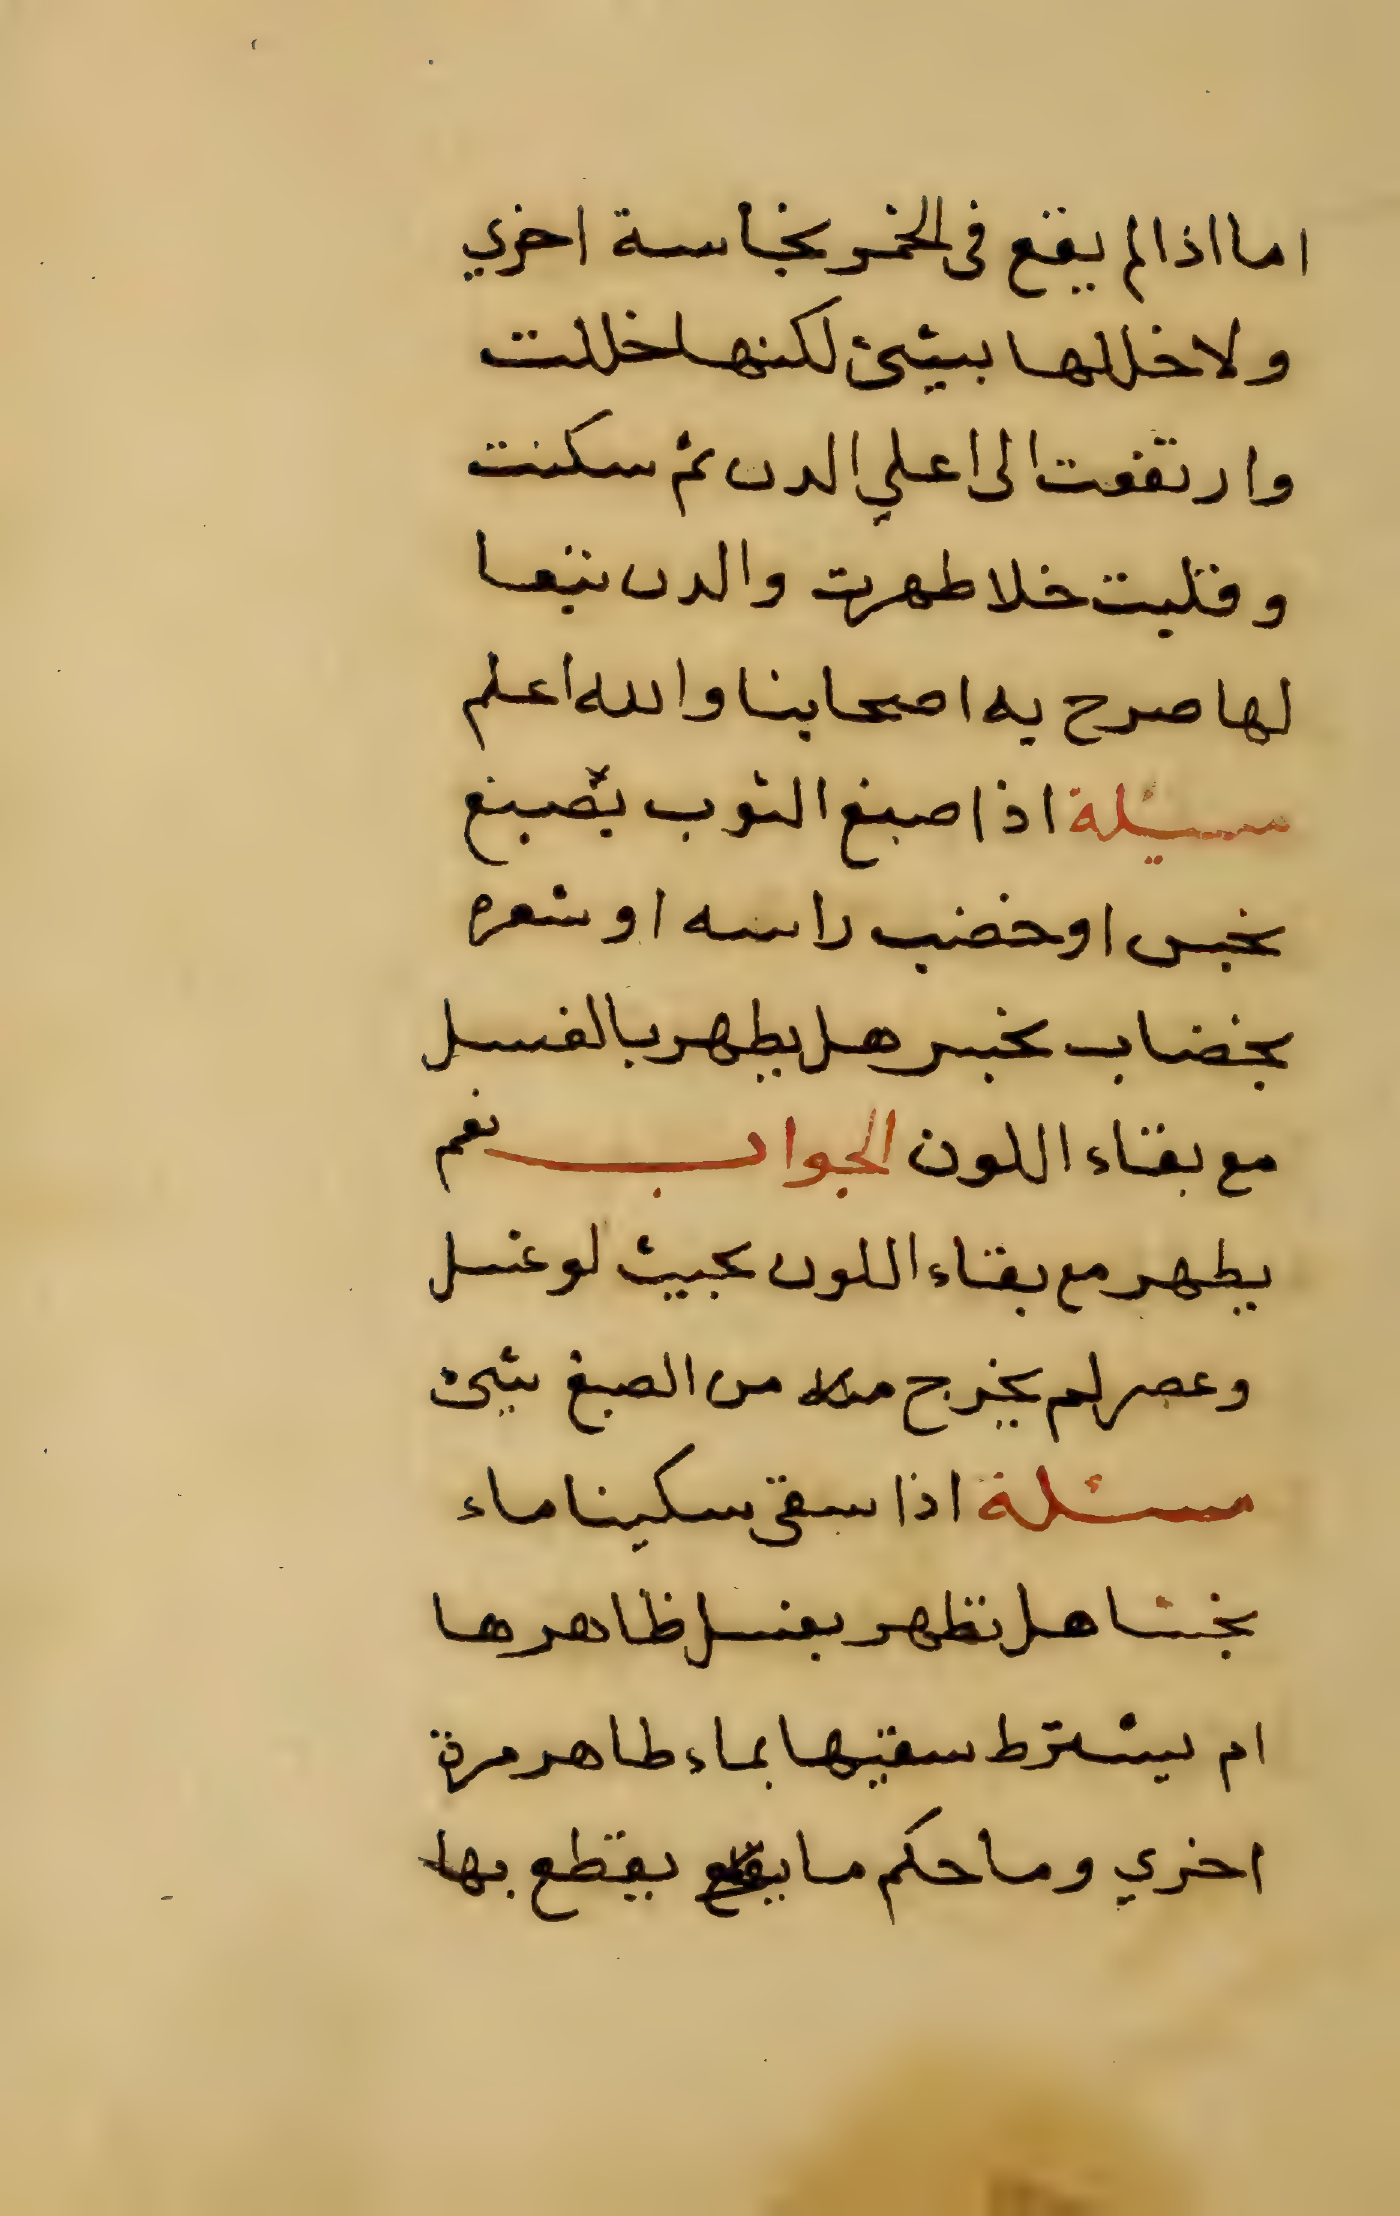 اما اذا لم يقع في الخمر نجاسة اخري
ولا خللها بشئ لكنها خللت
وارتفعت الى اعلي الدن ثم سكنت
وقلبت خلا طهرت والدن تبعا
لها صرح به اصحابنا والله اعلم
مسئلة اذا صبغ الثوب بصبغ
نجس او خضب راسه او شعره
بخضاب نجس هل يطهر بالغسل
مع بقاء اللون الجواب نعم
يطهر مع بقاء اللون بحيث لو غسل
وعصر لم يخرج من الصبغ شئ
مسئلة اذا سقى سكينا ماء
نجسا هل تطهر بغسل ظاهرها
ام يشترط سقيها بماء طاهر مرة
اخري وما حكم ما يقطع بها